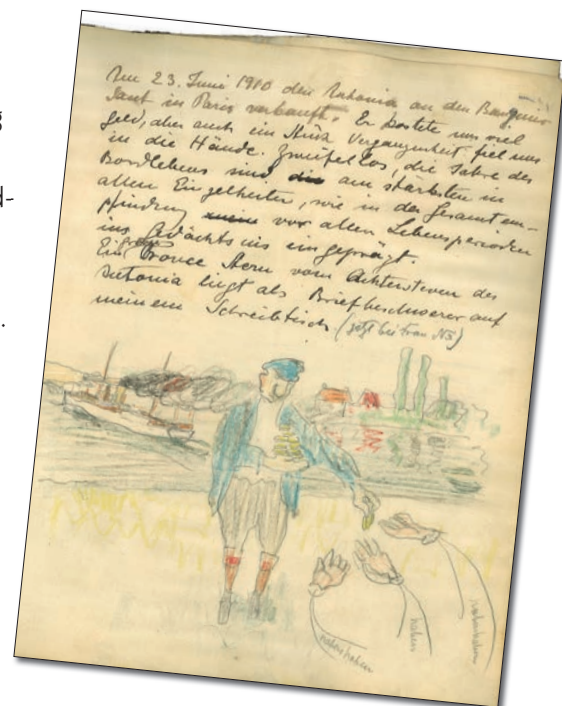 g
d-
.
Am 23. Juni 1910 den Antonia an den
in Paris verkauft. Er kostete uns viel
Geld, aber auch ein Stück Vergangenheit fiel uns
in die Hände. Zweifellos, die Jahre des
Bordlebens sind die am stärksten in
allen Einzelheiten, wie in der Gesamtem-
pfindung vor allen Lebensperioden
ins Gedächtnis eingeprägt.
Ein Bronce Stern vom Achtersteven des
Antonia liegt als Briefbeschwerer auf
meinem Schreibtisch. (jetzt bei Frau
haben haben
haben
haben haben